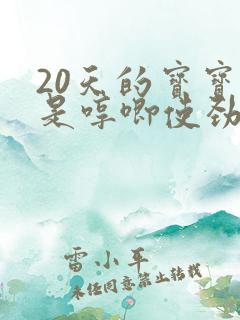 20天的宝宝
是哼唧使劲
雷小军
未经同意禁止转载